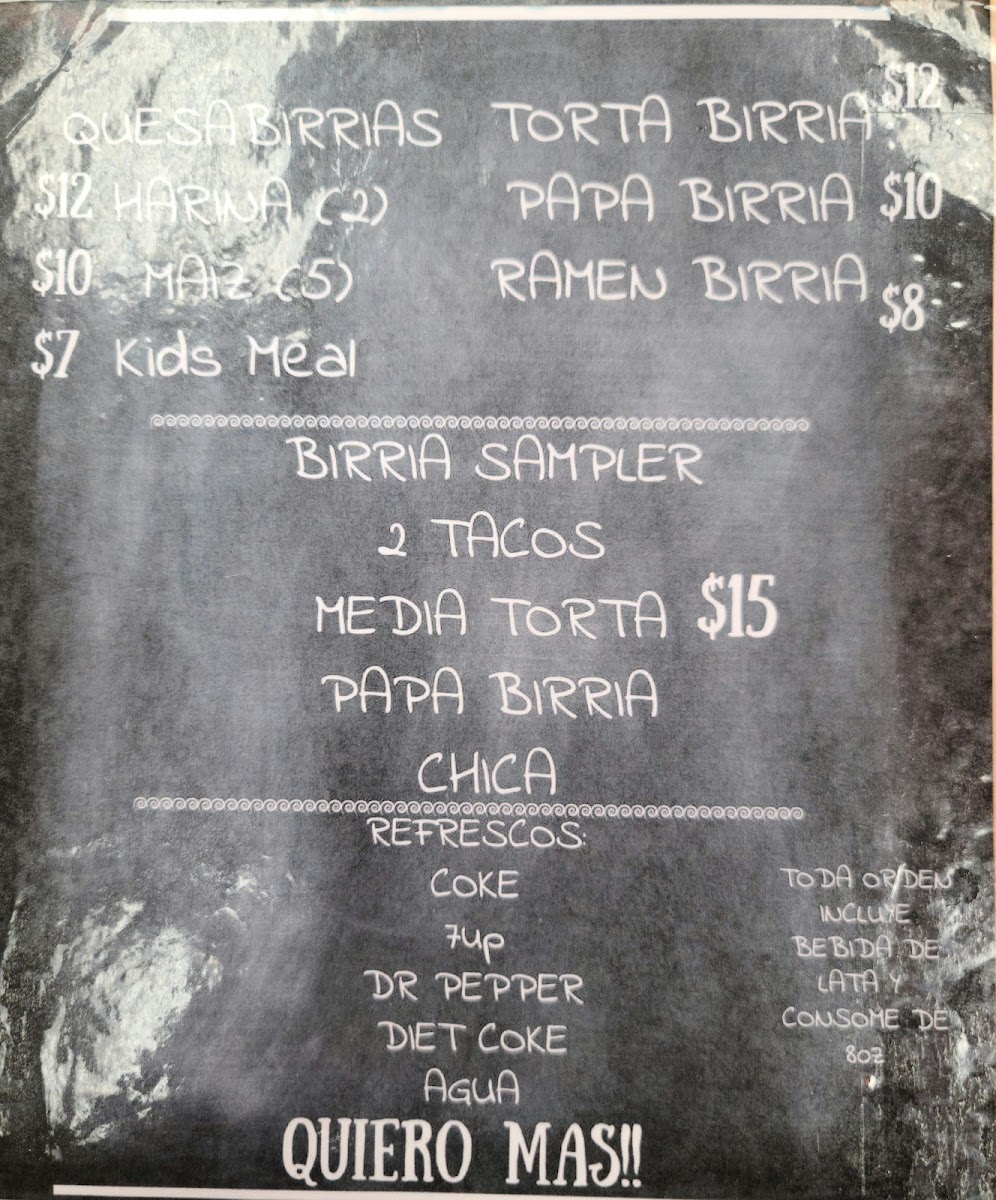 QUESABIRRIAS
$12 HARINA (2)
$10 MAIZ (5)
$7 Kids Meal
TORTA BIRRIA $12
PAPA BIRRIA $10
RAMEN BIRRIA $8
BIRRIA SAMPLER
2 TACOS
MEDIA TORTA $15
PAPA BIRRIA
CHICA
REFRESCOS:
COKE
7up
DR PEPPER
DIET COKE
AGUA
TODA ORDEN
INCLUYE
BEBIDA DE
LATA Y
CONSOME DE
8OZ
QUIERO MAS!!